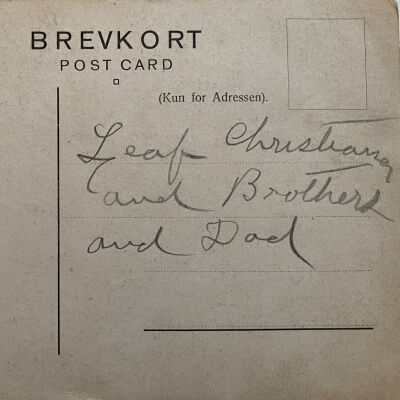 BREVKORT
POST CARD
(Kun for Adressen).
Leaf Christiansen
and Brothers
and Dad